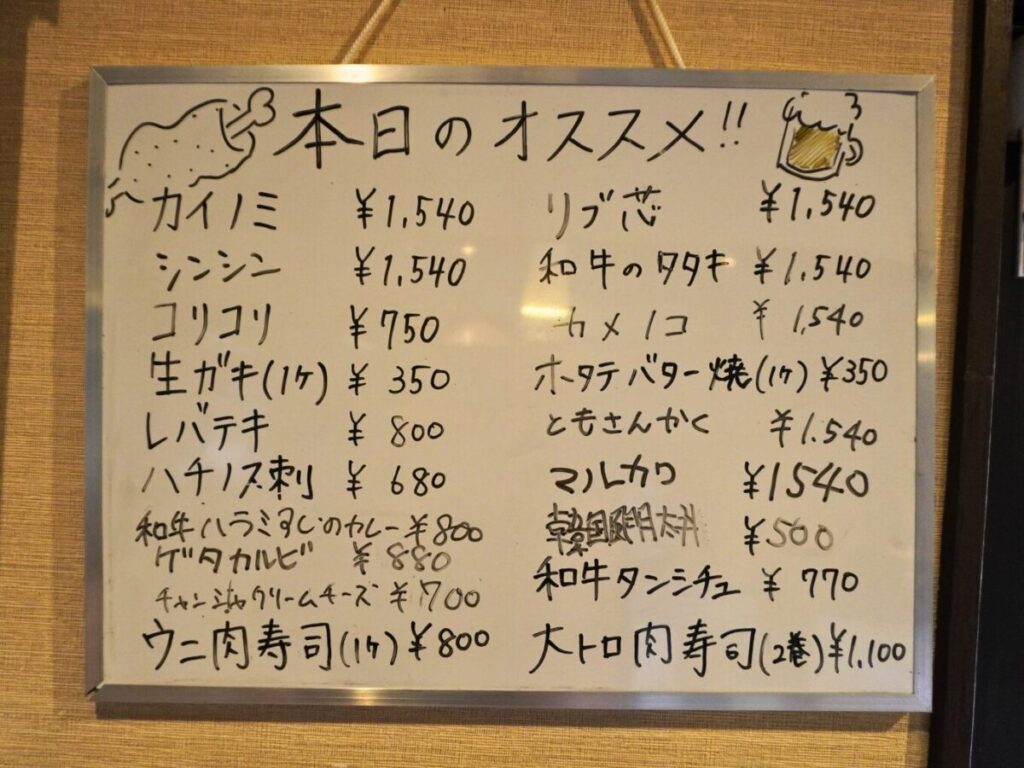 本日のオススメ!!
カイノミ ¥1,540
シンシン ¥1,540
コリコリ ¥750
生ガキ(1ヶ) ¥350
レバテキ ¥800
ハチノス刺 ¥680
和牛ハラミすじのカレー ¥800
ゲタカルビ ¥880
チャンジャクリームチーズ ¥700
ウニ肉寿司(1ヶ) ¥800
リブ芯 ¥1,540
和牛のタタキ ¥1,540
カメノコ ¥1,540
ホタテバター焼(1ヶ) ¥350
ともさんかく ¥1.540
マルカワ ¥1540
韓国 ¥500
和牛タンシチュー ¥770
大トロ肉寿司(2巻) ¥1,100